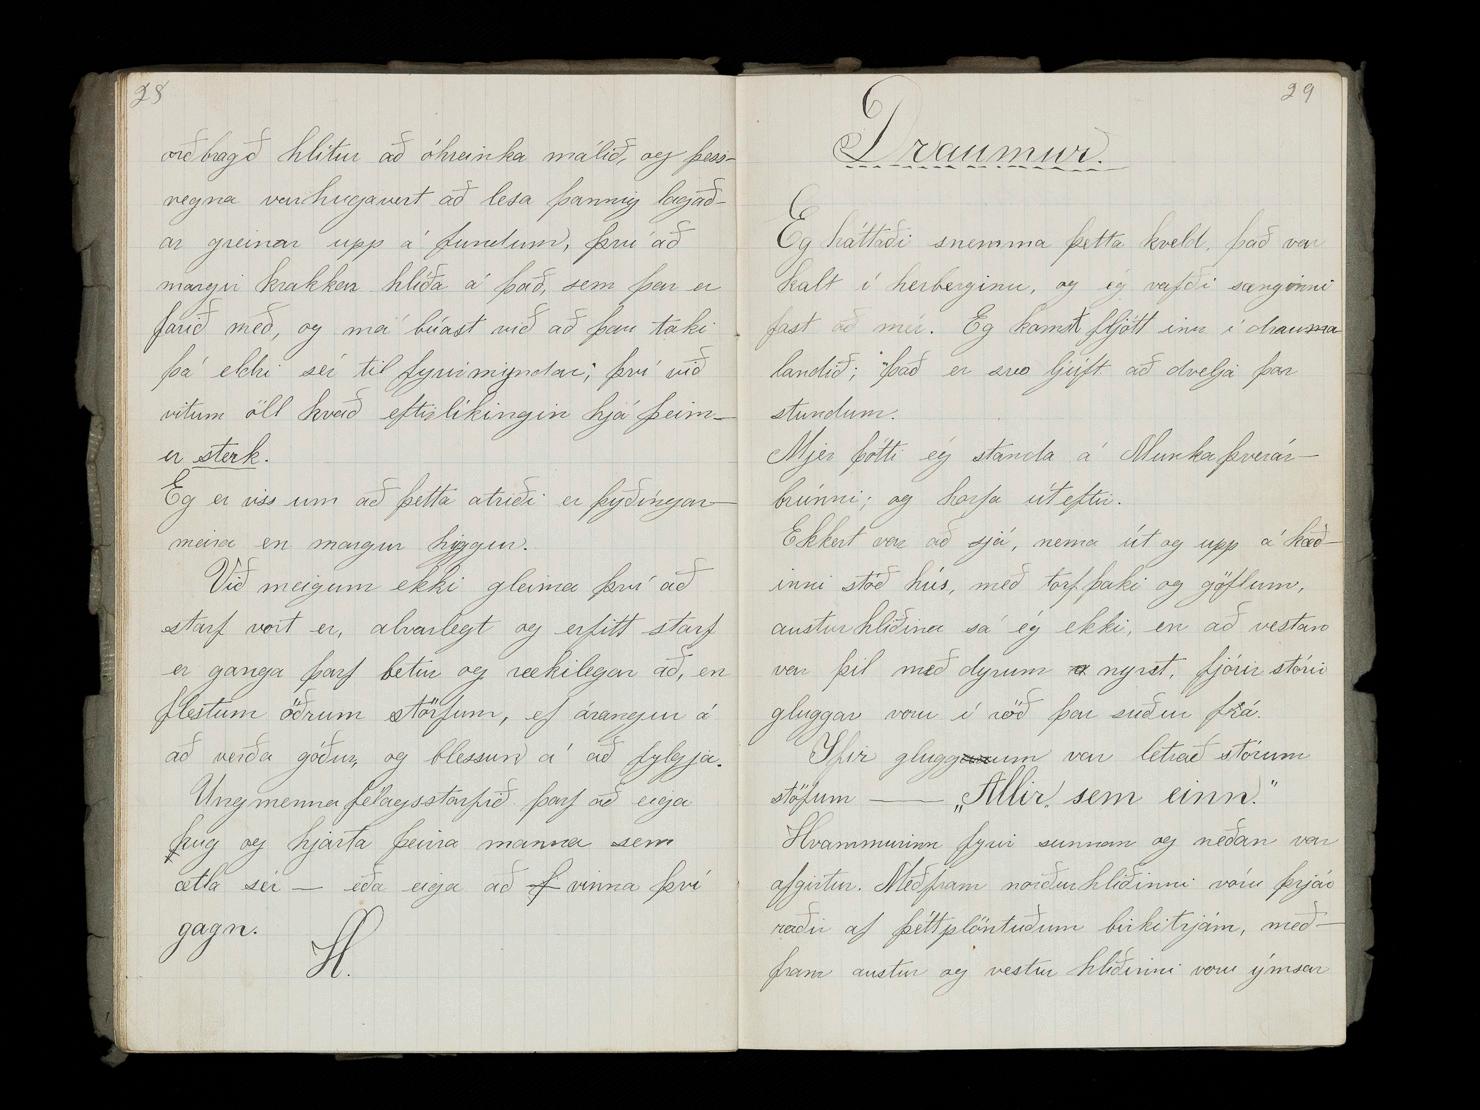 28
orðbragð hlítur að óhreinka málið, og þess-
vegna varhugavert að lesa þannig lagað-
ar greinar upp á fundum, því að
margir krakkar hlíða á það, sem þar er
farið með, og má búast við að þau taki
þá ekki sér til fyrirmyndar; því við
vitum öll hvað eftirlíkingin hjá þeim-
er sterk.
Eg er viss um að þetta atriði er þýðingar-
meira en margur hyggur.
Við meigum ekki gleima því að
starf vort er, alvarlegt og erfitt starf
er ganga þarf betur og rækilegar að, en
flestum öðrum störfum, ef árangur á
að verða góður, og blessun á að fylgja.
Ungmennafélagsstarfið þarf að eiga
hug og hjarta þeirra manna sem
ætla sér — eða eiga að vinna því
gagn.
H.
29
Draumur.
Eg háttaði snemma þetta kveld, það var
kalt í herberginu, og ég vafði sænginni
fast að mér. Eg komst fljótt inn í drauma
landið; það er svo ljúft að dvelja þar
stundum.
Mjer þótti ég standa á Munkaþverár-
brúnni; og horfa út eftir.
Ekkert var að sjá, nema út og upp á hæð-
inni stóð hús, með torfþaki og göflum,
austurhliðina sá ég ekki, en að vestan
var þil með dyrum nyrst, fjórir stórir
gluggar voru í röð þar suður frá.
Yfir gluggunum var letrað stórum
stöfum —— „Allir sem einn."
Hvammurinn fyrir sunnan og neðan var
afgirtur. Meðfram norðurhliðinni vóru þrjár
raðir af þéttplöntuðum birkitrjám, með-
fram austur og vestur hliðinni voru ýmsar